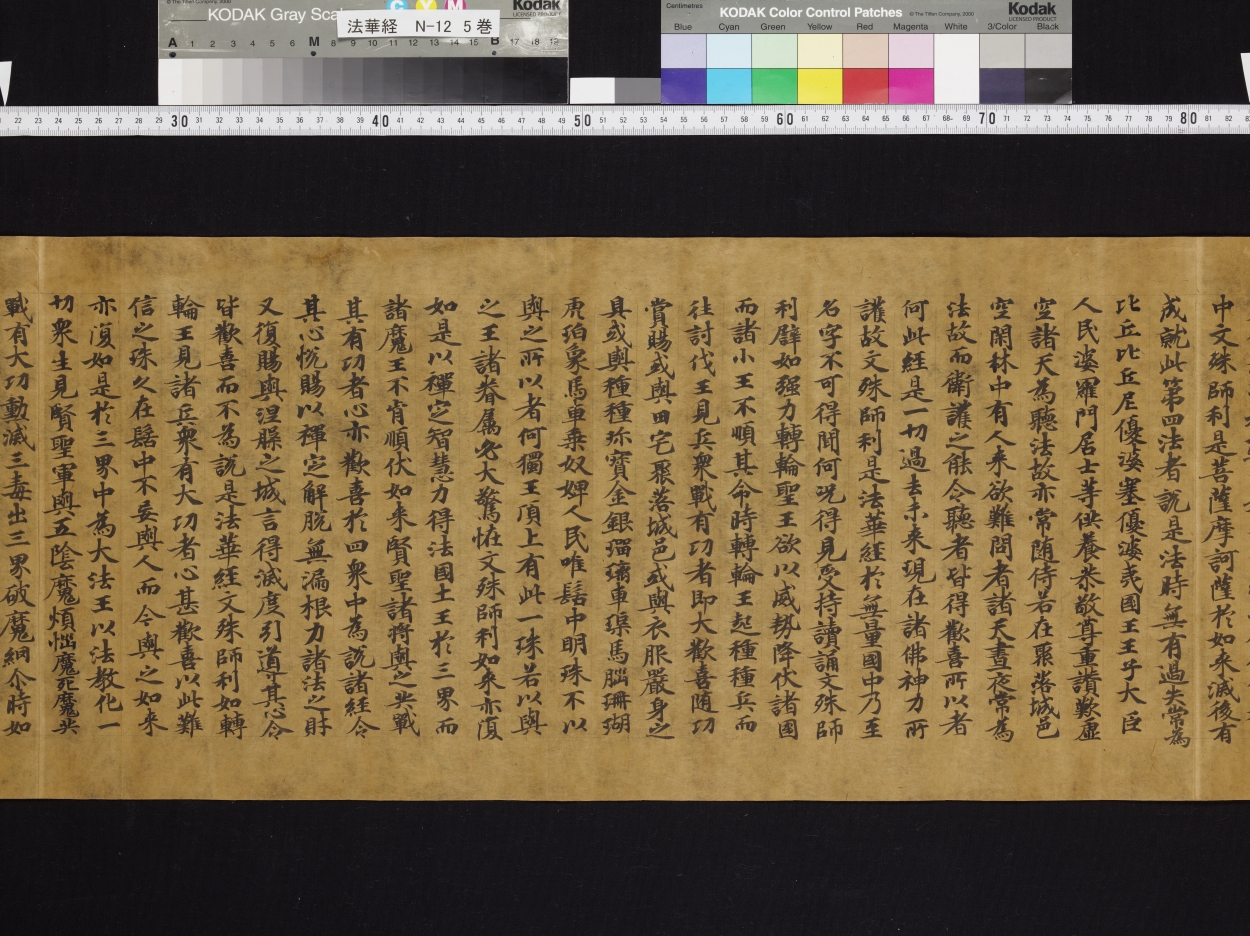 KODAK Gray Scale
法華経 N-12 5巻
Kodak
LICENSED PRODUCT
A 1 2 3 4 5 6 M 8 9 10 11 12 13 14 15 B 17 18 19
Centimetres
KODAK Color Control Patches
© The Tiffen Company, 2000
Kodak
LICENSED PRODUCT
Blue Cyan Green Yellow Red Magenta White 3/Color Black
22 23 24 25 26 27 28 29 30 31 32 33 34 35 36 37 38 39 40 41 42 43 44 45 46 47 48 49 50 51 52 53 54 55 56 57 58 59 60 61 62 63 64 65 66 67 68 69 70 71 72 73 74 75 76 77 78 79 80 81 82
中文殊師利是菩薩摩訶薩於如来滅後有
成就此第四法者說是法時無有過失常為
比丘比丘尼優婆塞優婆夷國王王子大臣
人民婆羅門居士等供養恭敬尊重讚歎虛
空諸天為聽法故亦常随侍若在聚落城邑
空閑林中有人来欲難問者諸天晝夜常為
法故而衛護之能令聽者皆得歡喜所以者
何此經是一切過去未来現在諸佛神力所
護故文殊師利是法華經於無量國中乃至
名字不可得聞何況得見受持讀誦文殊師
利辟如强力轉輪聖王欲以威勢降伏諸國
而諸小王不順其命時轉輪王起種種兵而
往討伐王見兵衆戰有功者即大歡喜随功
賞賜或與田宅聚落城邑或與衣服嚴身之
具或與種種珎寶金銀瑠璃車璖馬腦珊瑚
虎珀象馬車乗奴婢人民唯髻中明珠不以
與之所以者何獨王頂上有此一珠若以與
之王諸眷属必大驚恠文殊師利如来亦復
如是以禪定智慧力得法國土王於三界而
諸魔王不肯順伏如来賢聖諸將與之共戰
其有功者心亦歡喜於四衆中為說諸經令
其心悅賜以禪定解脫無漏根力諸法之財
又復賜與涅槃之城言得滅度引導其心令
皆歡喜而不為說是法華經文殊師利如轉
輪王見諸兵衆有大功者心甚歡喜以此難
信之珠久在髻中不妄與人而今與之如来
亦復如是於三界中為大法王以法教化一
切衆生見賢聖軍與五陰魔煩惱魔死魔共
戰有大功勳滅三毒出三界破魔網尒時如